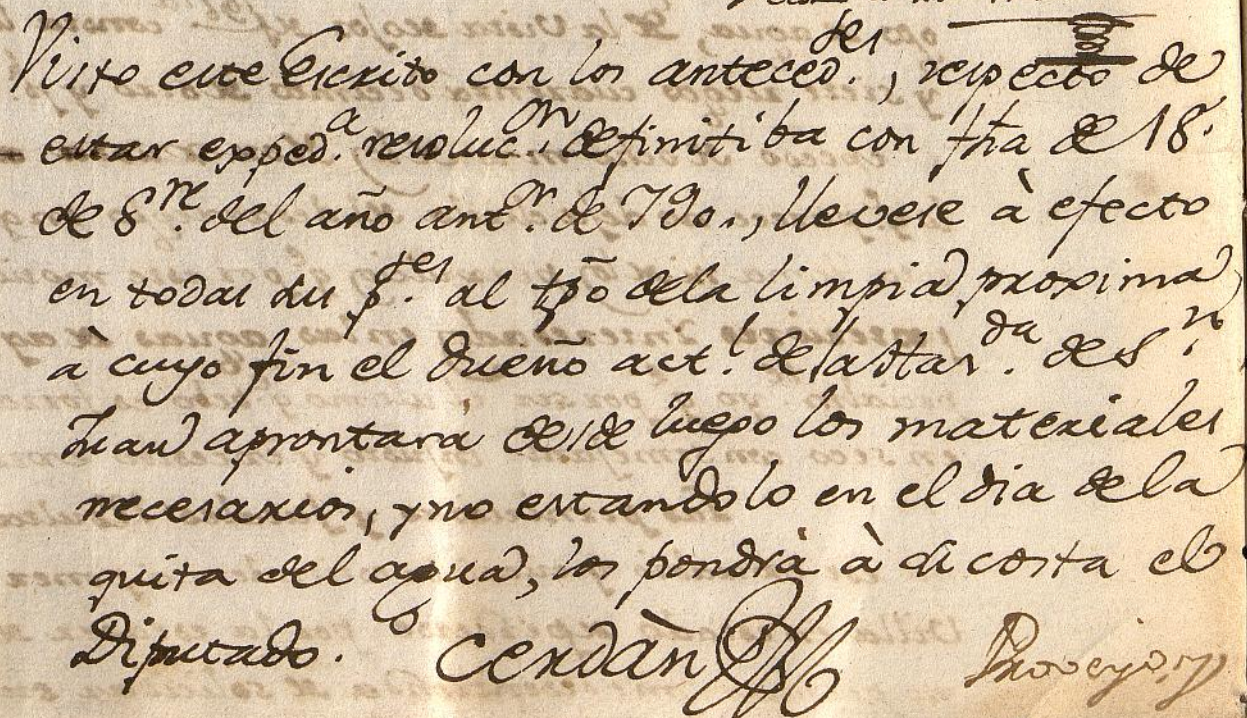 Visto este Escrito con los anteced.^tes, respecto de
estar exped.^a resoluc.^on definitiba con fha de 18
de 8^re. del año ant.^r de 790., llevese à efecto
en todas sus p.^tes al tpõ dela limpia proxima,
à cuyo fin el dueño act.^l de la Star.^da de S.^n
Juan aprontará desde luego los materiales
necesarios, y no estandolo en el dia de la
quita del agua, los pondrà à su costa el
Diputado. Cerdàn